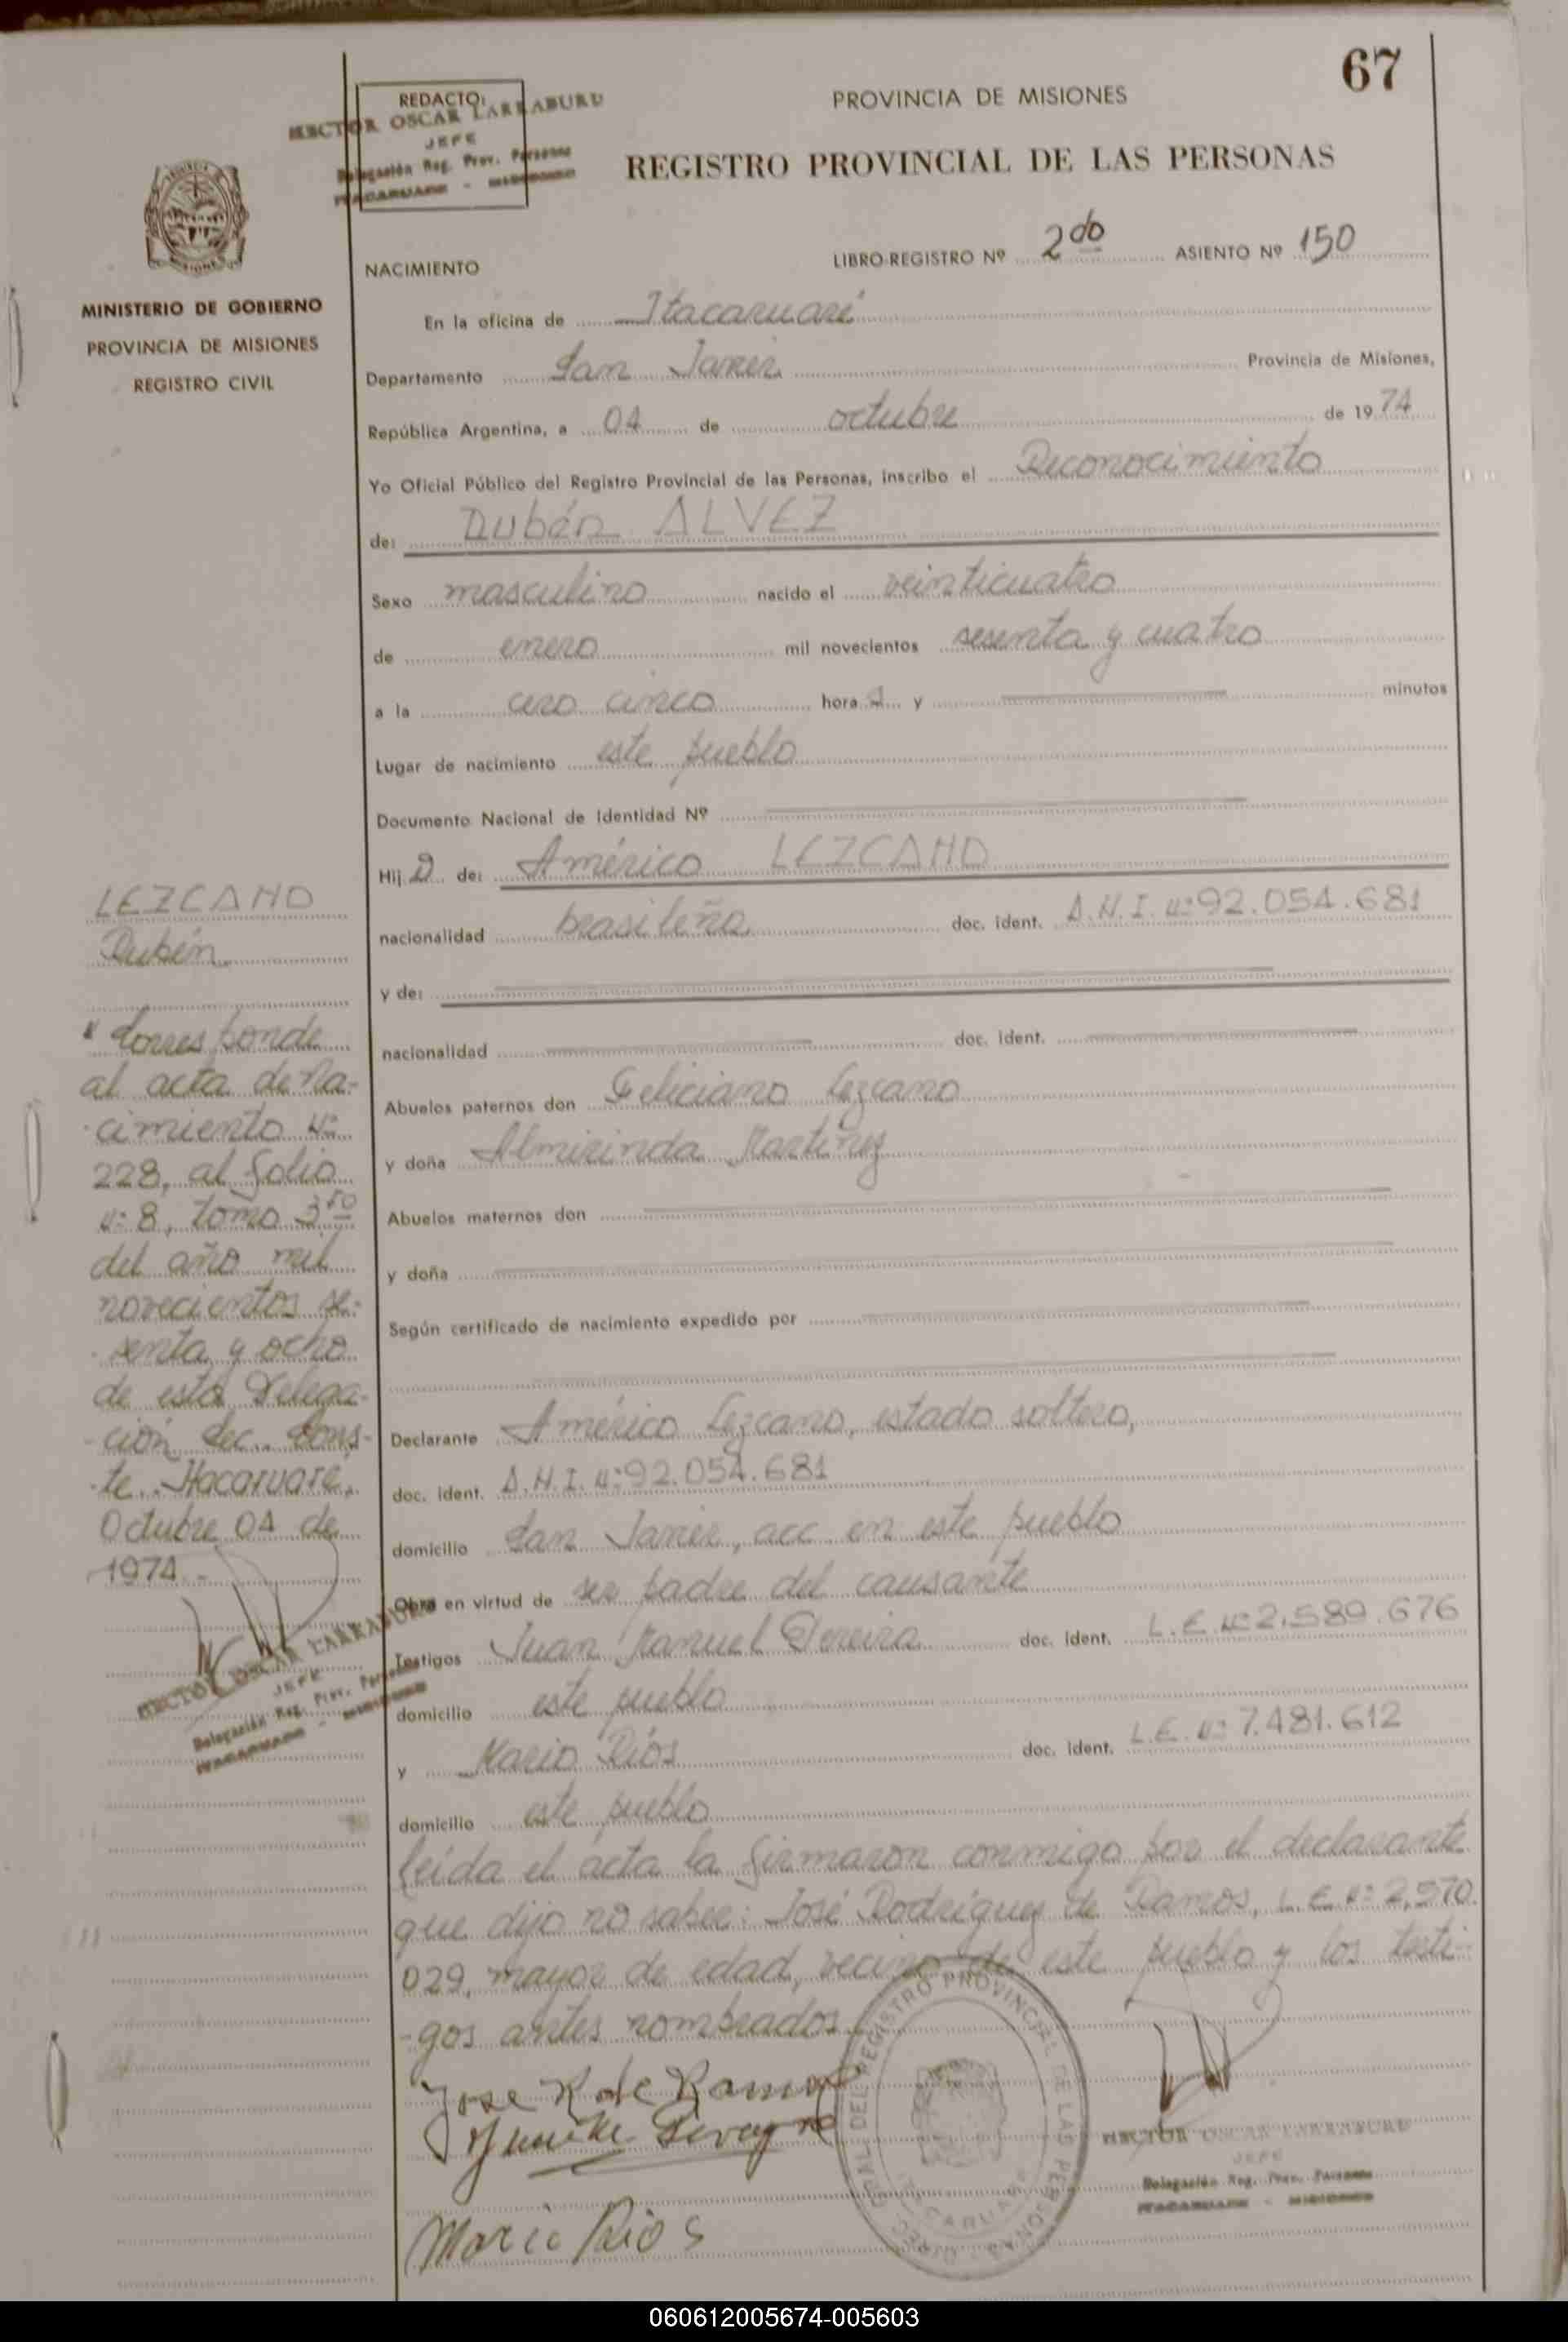 67
REDACTO:
HECTOR OSCAR LARRABURU
JEFE
Delegación Reg. Prov. Personas
ITACARUARE - MISIONES
PROVINCIA DE MISIONES
REGISTRO PROVINCIAL DE LAS PERSONAS
MINISTERIO DE GOBIERNO
PROVINCIA DE MISIONES
REGISTRO CIVIL
NACIMIENTO
LIBRO-REGISTRO Nº 2do ASIENTO Nº 150
En la oficina de Itacaruaré
Departamento San Javier Provincia de Misiones,
República Argentina, a 04 de octubre de 1974
Yo Oficial Público del Registro Provincial de las Personas, inscribo el Reconocimiento
de: Rubén ALVEZ
Sexo masculino nacido el veinticuatro
de enero mil novecientos sesenta y cuatro
a la cero cinco hora s y minutos
Lugar de nacimiento este pueblo
Documento Nacional de Identidad Nº
Hij o de: Américo LEZCANO
nacionalidad brasileña doc. ident. D.N.I. nº 92.054.681
y de:
nacionalidad doc. ident.
Abuelos paternos don Feliciano Lezcano
y doña Almirinda Martinez
Abuelos maternos don
y doña
Según certificado de nacimiento expedido por
Declarante Américo Lezcano, estado soltero,
doc. ident. D.N.I. nº 92.054.681
domicilio San Javier, acc en este pueblo
Obra en virtud de ser padre del causante
Testigos Juan Manuel Pereira doc. ident. L.E. nº 2.589.676
domicilio este pueblo
y Mario Ríos doc. ident. L.E. nº 7.481.612
domicilio este pueblo
leída el acta la firmaron conmigo por el declarante
que dijo no saber: José Rodriguez de Ramos, L.E. nº 2.570.
029, mayor de edad, vecino de este pueblo y los testi-
-gos antes nombrados.
LEZCANO
Rubén
Corresponde
al acta de na-
cimiento nº
228, al folio
nº 8, tomo 3ro
del año mil
novecientos se-
senta y ocho
de esta Delega-
ción Sec. Cons-
te. Itacaruaré,
Octubre 04 de
1974.-
HECTOR OSCAR LARRABURU
JEFE
Delegación Reg. Prov. Personas
ITACARUARE - MISIONES
Jose R de Ramos
Mario Rios
REGISTRO PROVINCIAL DE LAS PERSONAS
ITACARUARE
HECTOR OSCAR LARRABURU
JEFE
Delegación Reg. Prov. Personas
ITACARUARE - MISIONES
060612005674-005603